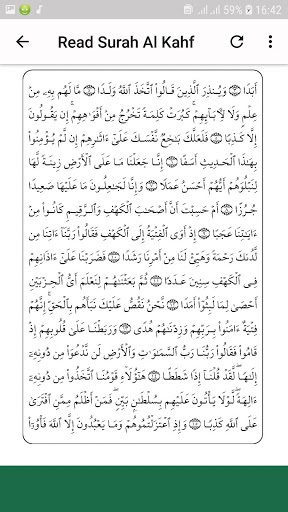 59% 16:42
Read Surah Al Kahf
أَبَدًا ۝٣ وَيُنذِرَ ٱلَّذِينَ قَالُوا۟ ٱتَّخَذَ ٱللَّهُ وَلَدًا ۝٤ مَّا لَهُم بِهِۦ مِنْ
عِلْمٍ وَلَا لِءَابَآئِهِمْ ۚ كَبُرَتْ كَلِمَةً تَخْرُجُ مِنْ أَفْوَٰهِهِمْ ۚ إِن يَقُولُونَ
إِلَّا كَذِبًا ۝٥ فَلَعَلَّكَ بَٰخِعٌ نَّفْسَكَ عَلَىٰٓ ءَاثَٰرِهِمْ إِن لَّمْ يُؤْمِنُوا۟
بِهَٰذَا ٱلْحَدِيثِ أَسَفًا ۝٦ إِنَّا جَعَلْنَا مَا عَلَى ٱلْأَرْضِ زِينَةً لَّهَا
لِنَبْلُوَهُمْ أَيُّهُمْ أَحْسَنُ عَمَلًا ۝٧ وَإِنَّا لَجَٰعِلُونَ مَا عَلَيْهَا صَعِيدًا
جُرُزًا ۝٨ أَمْ حَسِبْتَ أَنَّ أَصْحَٰبَ ٱلْكَهْفِ وَٱلرَّقِيمِ كَانُوا۟ مِنْ
ءَايَٰتِنَا عَجَبًا ۝٩ إِذْ أَوَى ٱلْفِتْيَةُ إِلَى ٱلْكَهْفِ فَقَالُوا۟ رَبَّنَآ ءَاتِنَا مِن
لَّدُنكَ رَحْمَةً وَهَيِّئْ لَنَا مِنْ أَمْرِنَا رَشَدًا ۝١٠ فَضَرَبْنَا عَلَىٰٓ ءَاذَانِهِمْ
فِى ٱلْكَهْفِ سِنِينَ عَدَدًا ۝١١ ثُمَّ بَعَثْنَٰهُمْ لِنَعْلَمَ أَىُّ ٱلْحِزْبَيْنِ
أَحْصَىٰ لِمَا لَبِثُوٓا۟ أَمَدًا ۝١٢ نَّحْنُ نَقُصُّ عَلَيْكَ نَبَأَهُم بِٱلْحَقِّ ۚ إِنَّهُمْ
فِتْيَةٌ ءَامَنُوا۟ بِرَبِّهِمْ وَزِدْنَٰهُمْ هُدًى ۝١٣ وَرَبَطْنَا عَلَىٰ قُلُوبِهِمْ إِذْ
قَامُوا۟ فَقَالُوا۟ رَبُّنَا رَبُّ ٱلسَّمَٰوَٰتِ وَٱلْأَرْضِ لَن نَّدْعُوَا۟ مِن دُونِهِۦٓ
إِلَٰهًا ۖ لَّقَدْ قُلْنَآ إِذًا شَطَطًا ۝١٤ هَٰٓؤُلَآءِ قَوْمُنَا ٱتَّخَذُوا۟ مِن دُونِهِۦٓ
ءَالِهَةً ۖ لَّوْلَا يَأْتُونَ عَلَيْهِم بِسُلْطَٰنٍۭ بَيِّنٍ ۖ فَمَنْ أَظْلَمُ مِمَّنِ ٱفْتَرَىٰ
عَلَى ٱللَّهِ كَذِبًا ۝١٥ وَإِذِ ٱعْتَزَلْتُمُوهُمْ وَمَا يَعْبُدُونَ إِلَّا ٱللَّهَ فَأْوُۥٓا۟